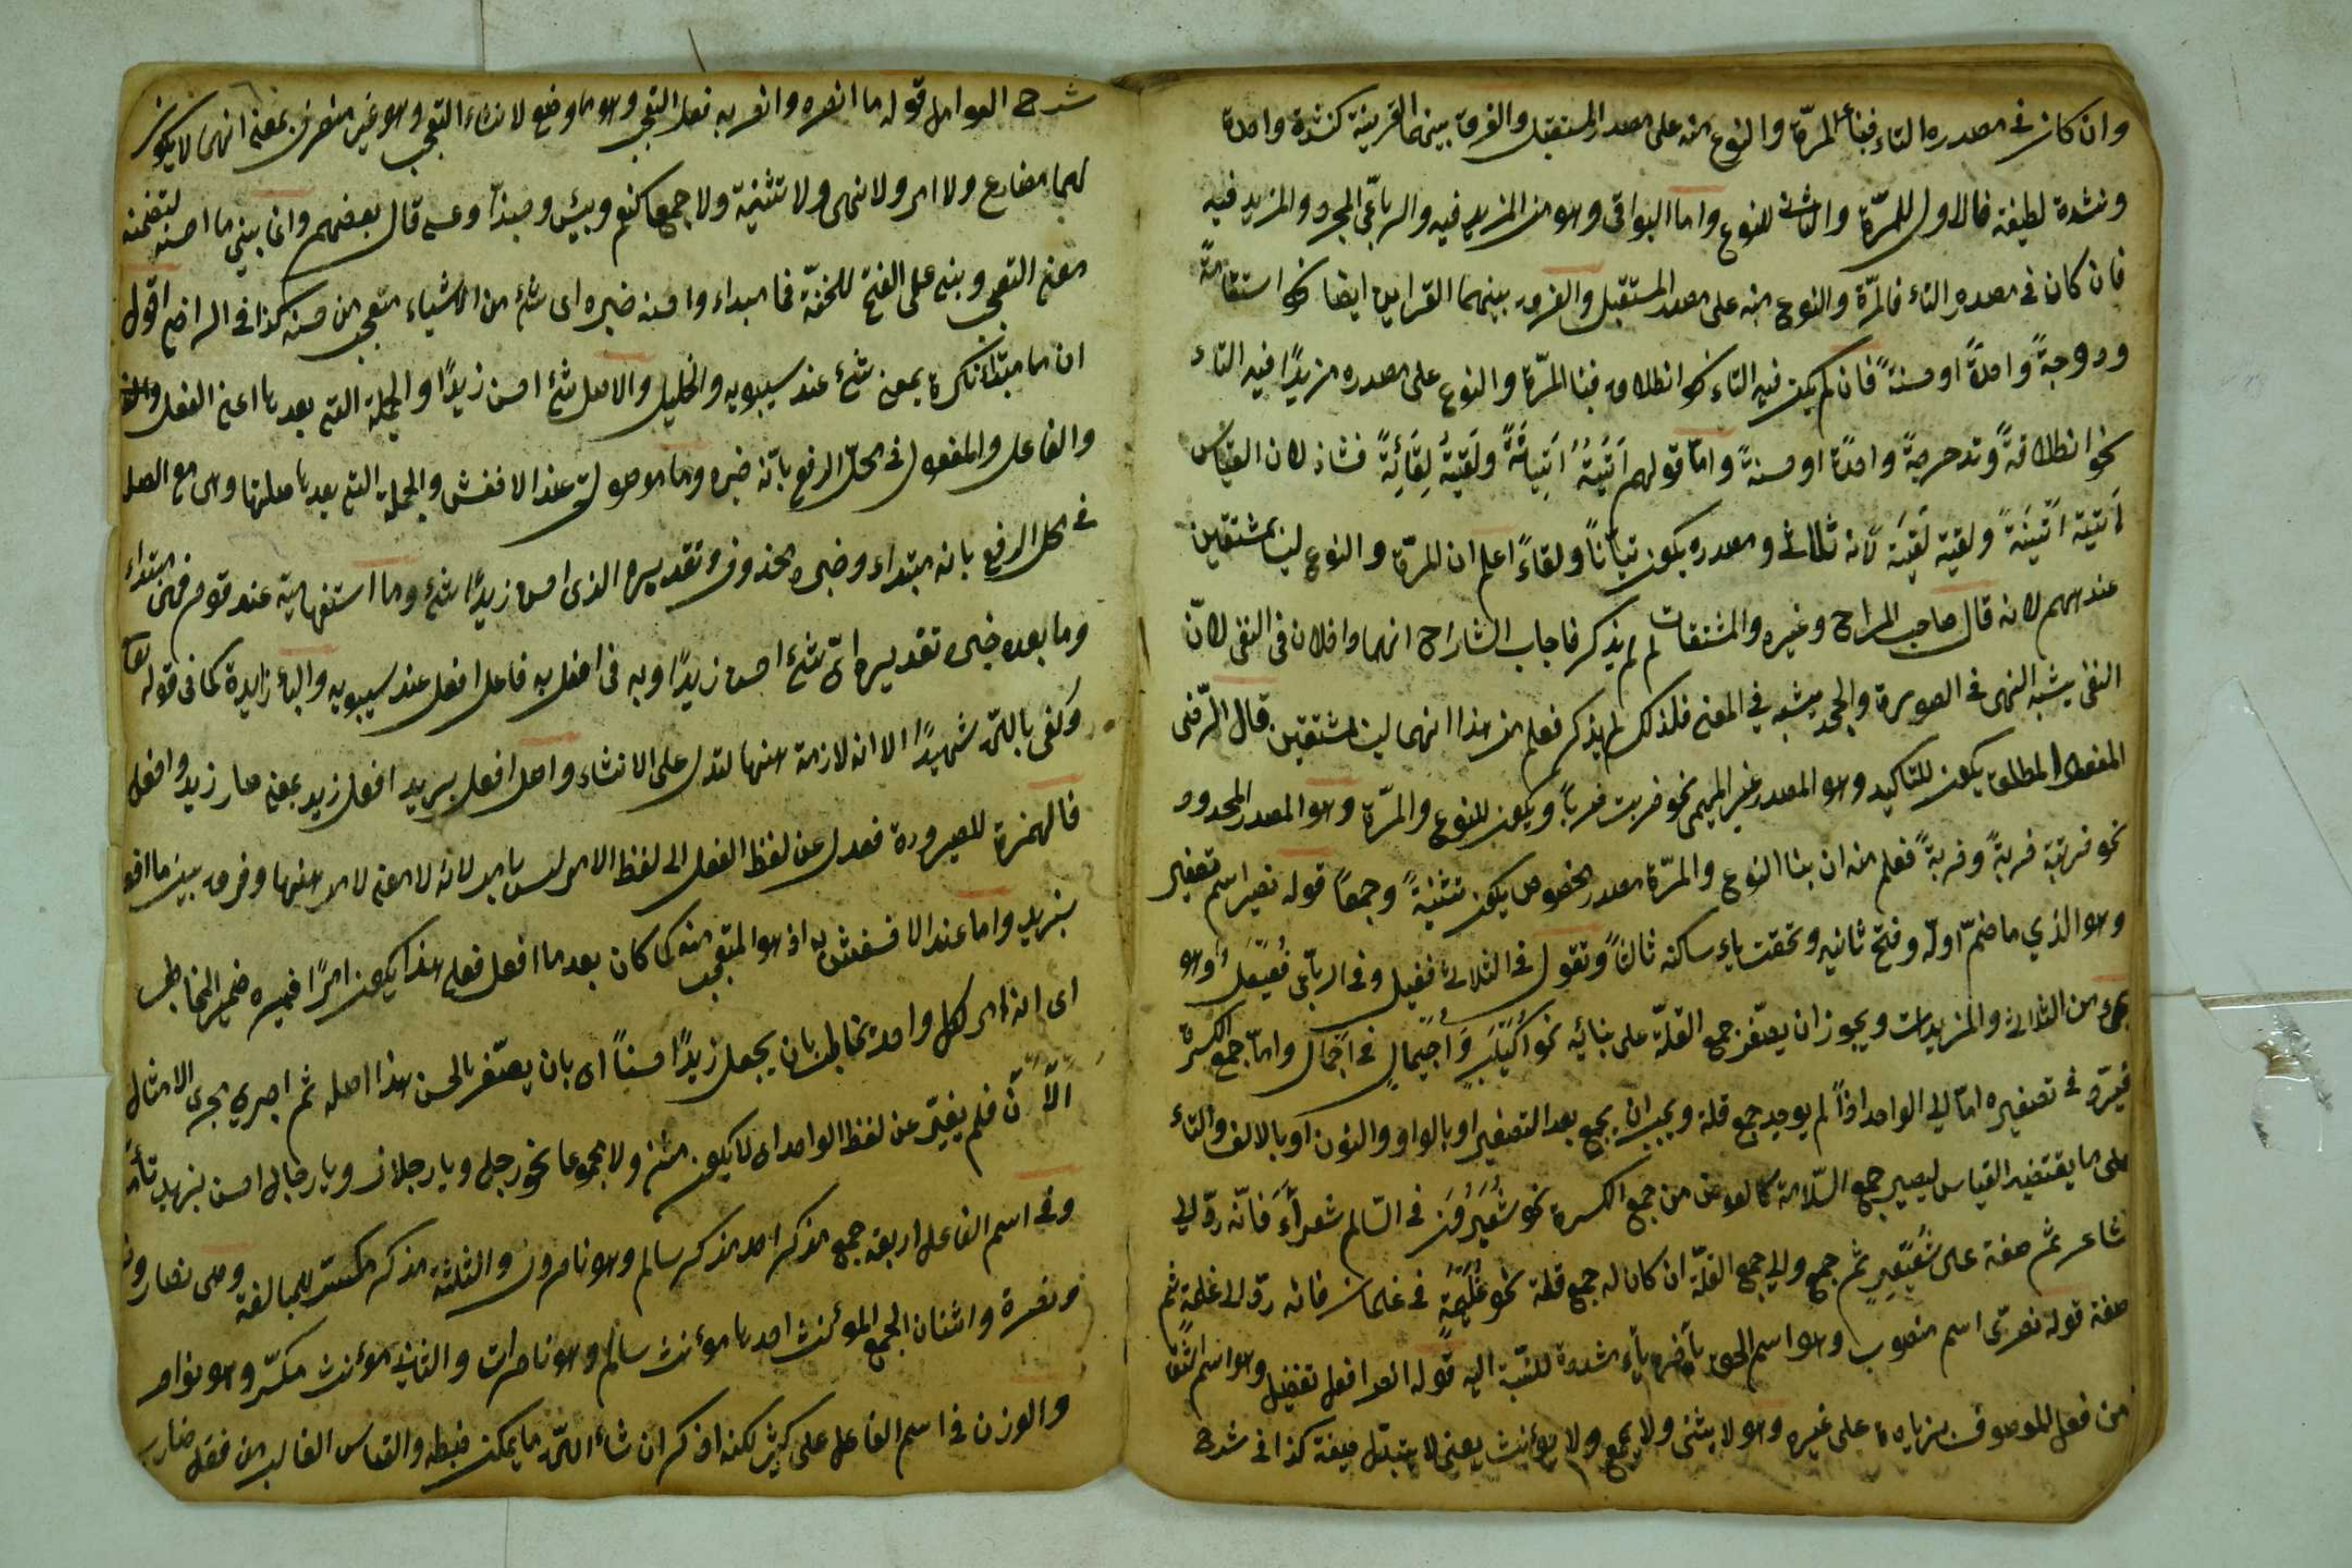 وان كان في مصدره التاء فبناء المرّة والنوع منه على مصدر المستقبل والفرق بينهما القرينة كنشدة واحدة
ونشدة لطيفة فالاول للمرّة والثاني للنوع واما البواقي وهو من المزيد فيه والرباعي المجرد والمزيد فيه
فان كان في مصدره التاء فالمرّة والنوع منه على مصدر المستقبل والفرق بينهما القراين ايضا نحو استقامة
ودحرجة واحدة او حسنة فان لم يكن فيه التاء نحو انطلاق فبنا المرّة والنوع على مصدره مزيدًا فيه التاء
نحو انطلاقة وتدحرجة واحدة او حسنة واما قولهم اتيته اتيانة ولقيته لقائة فشاذ لان القياس
اتيته اتينة ولقيته لقية لانه ثلاثي ومصدره يكون تيانًا ولقاءً اعلم ان المرّة والنوع ليسا بمشتقين
عندهم لانه قال صاحب المراح وغيره والمشتقات لم يذكر فاجاب الشارح انهما داخلان في النفي لانّ
النفي يشبه النهي في الصورة والجحد يشبه في المعنى فلذلك لم يذكر فعلم من هذا انهما ليسا بمشتقين قال الرّضي
المفعول المطلق يكون للتاكيد وهو المصدر غير الميمي نحو ضربت ضربًا ويكون للنوع والمرّة وهو المصدر المحدود
نحو ضربته ضربة وضربة فعلم منه ان بنا النوع والمرّة مصدر مخصوص يكون تثنية وجمعًا قوله نصير اسم تصغير
وهو الذي ما ضمّ اوله وفتح ثانيه وتحقت ياء ساكنه ثالثًا وتقول في الثلاثي فعيل وفي الرباعي فعيعل وهو
يجيء من الثلاثي والمزيدات ويجوز ان يصغر جمع القلّة على بنائه نحو اكيلب واجيمال في اجمال وامّا جمع الكسرة
فيردّ في تصغيره امّا الى الواحد اذا لم يوجد جمع قلة ويجب ان يجمع بعد التصغير او بالواو والنون او بالالف والتاء
على ما يقتضيه القياس ليصير جمع السّلامة كالعوض من جمع الكسرة نحو شعيرون في السّالم شعراء فانّه ردّ الى
شاعر ثم صغة على شعيعير ثم جمع والى جمع القلّة ان كان له جمع قلة نحو غليمة في غلمان فانه ردّ الى غلمة ثم
صغة قوله نصريّ اسم منصوب وهو اسم الحق بآخره ياء مشددة للنسبة اليه قوله انصر افعل تفضيل وهو اسم اشتق
من فعل للموصوف بزيادة على غيره وهو لا يثنى ولا يجمع ولا يؤنث يعني لا يتبدل صيغة كذا في شرح
شرح العوامل قوله ما انصره وانصر به فعلا التعجب وهو ما وضع لانشاء التعجب وهو غير منصرف بمعنى انهما لا يكون
لهما مضارع ولا امر ولا نهي ولا تثنية ولا جمع كنعم وبئس وحبذا وعسى قال بعضهم وانما بني ما احسنه لتضمنه
معنى التعجب وبني على الفتح للخفّة فما مبتداء واحسنه خبره اى شيء من الاشياء متعجب من حسنه كذا في الراضح اقول
ان ما مبتداء نكرة بمعنى شيء عند سيبويه والخليل والاصل شيء احسن زيدًا والجملة التي بعدها اعني الفعل
والفاعل والمفعول في محلّ الرفع بانّه خبره وما موصولة عند الاخفش والجملة التي بعدها صلتها وهي مع الصلة
في محل الرفع بانه مبتداء وخبره محذوف تقديره الذى احسن زيدًا شيء وما استفهامية عند قوم فهي مبتداء
وما بعده خبره تقديره اىّ شيء احسن زيدًا وبه في افعل به فاعل افعل عند سيبويه والباء زايدة كما في قوله تعا
وكفى بالله شهيدًا الا انه لازمة ههنا لتدل على الانشاء واصل افعل بزيد افعل زيد بمعنى صار زيد وافعل
فالهمزة للصيرورة فعدل عن لفظ الفعل الى لفظ الامر ليس بامر لانه لا معنى لامر ههنا وفرق بينه ما افعل
بزيد واما عند الاخفش به اذ هو المتعجب منه كما كان بعد ما افعل فعلى هذا يكون امرًا فميره ضمير المخاطب
اى انه امر لكل واحد مخاطب بان يجعل زيدًا حسنًا اى بان يصفه بالحسن هذا اصله ثم اجرى مجرى الامثال
الّا ان فلم يغيّر عن لفظ الواحد اى لا يكون مثنى ولا مجموعا نحو رجل ويا رجلان ويا رجال احسن بزيد تأمل
وفي اسم الفاعل اربعة جمع مذكر احد مذكر سالم وهو ناصرون والثلثة مذكر مكسر للمبالغة وهي نصار ونصر
ونصرة واثنان الجمع المؤنث احدها مؤنث سالم وهو ناصرات والثاني مؤنث مكسّر وهو نواصر
والوزن في اسم الفاعل على كثير لكنه اذكر ان شاء الله ما يمكن ضبطه والقياس الغالب من فعل ضارب